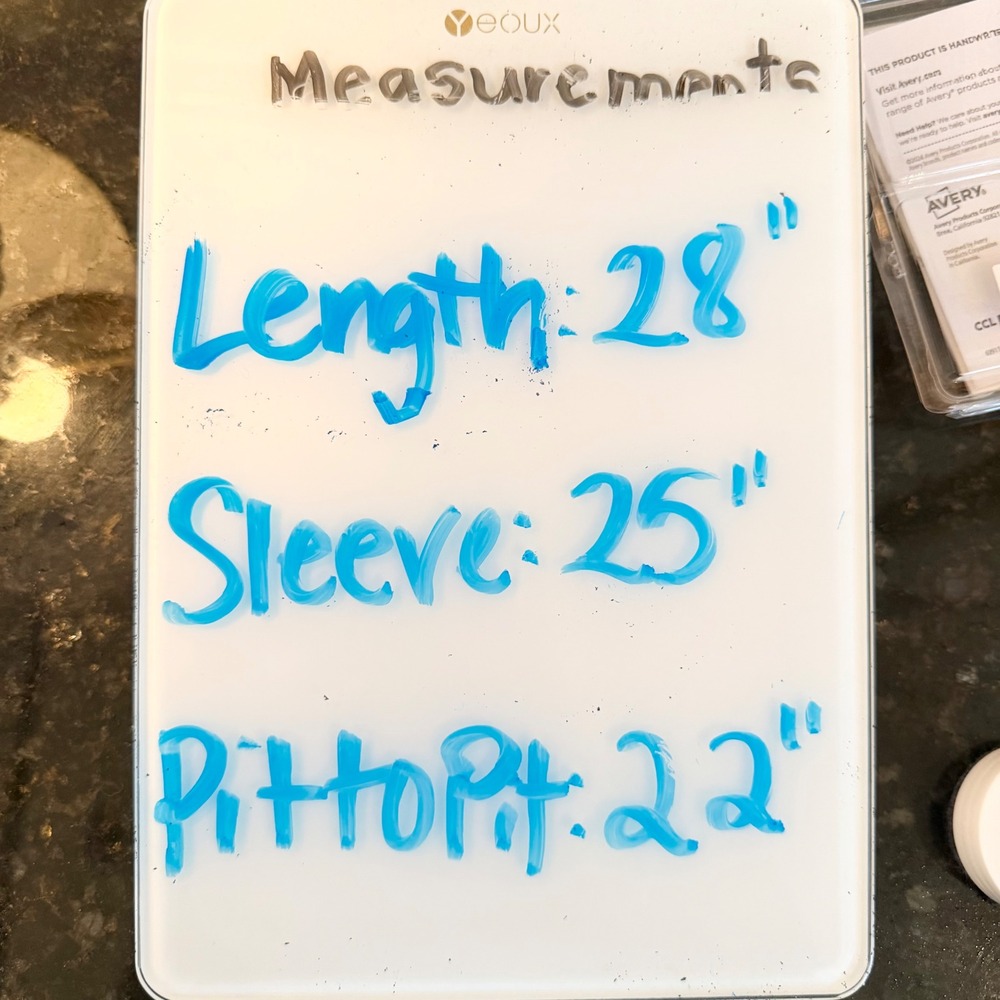 Yeoux
Measurements
Length: 28"
Sleeve: 25"
Pit to Pit: 22"
THIS PRODUCT IS
Visit Avery.com
Get more information about
range of Avery® products
Need Help? We care about
we're ready to help. Visit
AVERY®
Avery Products
Brea, California
Designed by Avery
Products Corporation
in California.
CCL